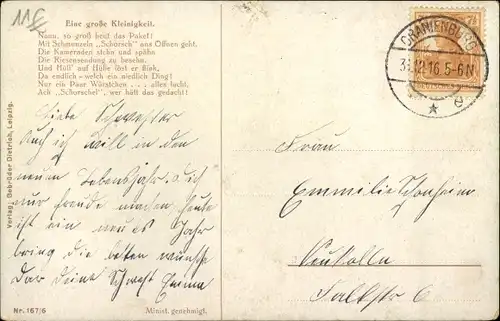 115
Eine große Kleinigkeit.
Nanu, so groß heut das Paket!
Mit Schmunzeln „Schorsch" ans Öffnen geht.
Die Kameraden stehn und spähn
Die Riesensendung zu besehn.
Und Hüll' auf Hülle löst er flink,
Da endlich - welch ein niedlich Ding!
Nur ein Paar Würstchen . . . alles lacht,
Ach „Schorschel", wer hätt das gedacht!
ORANIENBURG
31.12.16.5-6N
7½
Liebe Schwester
Auch ich will in den
neuen Lebensjahr dich
nur freude machen heute
ist ein neues Jahr
bring die besten wünsche
dar deine Schwest Emma
Frau
Emmilie
Neukölln
Falkstr 6
Verlag Gebrüder Dietrich, Leipzig.
Nr. 167/6
Minist. genehmigt.